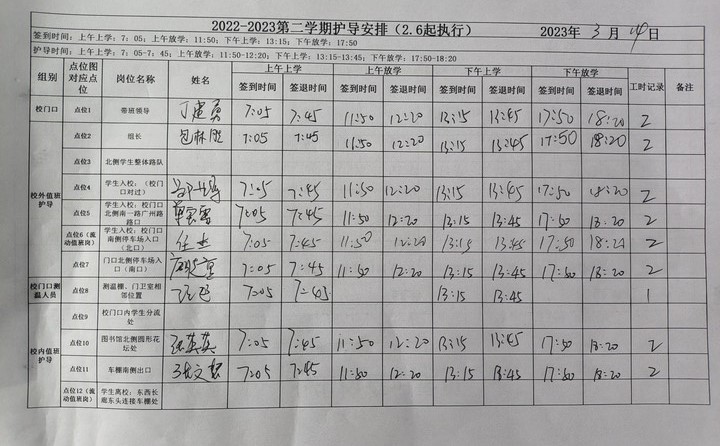 2022-2023第二学期护导安排（2.6起执行） 2023年 3 月 14 日
签到时间：上午上学：7：05；上午放学：11:50；下午上学：13:15；下午放学：17:50
护导时间：上午上学：7:05-7：45；上午放学：11:50-12:20；下午上学：13:15-13:45；下午放学：17:50-18:20
组别 点位图对应点位 岗位名称 姓名 上午上学 上午放学 下午上学 下午放学 工时记录 备注
签到时间 签退时间 签到时间 签退时间 签到时间 签退时间 签到时间 签退时间
校门口 点位1 带班领导 丁建勇 7:05 7:45 11:50 12:20 13:15 13:45 17:50 18:20 2
校外值班护导 点位2 组长 7:05 7:45 11:50 12:20 13:15 13:45 17:50 18:20 2
点位3 北侧学生整体路队
点位4 学生入校；（校门口对过） 7:05 7:45 11:50 12:20 13:15 13:45 17:50 18:20 2
点位5 学生入校；校门口北侧南一路广州路路口 7:05 7:45 11:50 12:20 13:15 13:45 17:50 18:20 2
点位6（流动值班岗） 学生入校；校门口南侧停车场入口（北口） 7:05 7:45 11:50 12:20 13:15 13:45 17:50 18:20 2
点位7 门口北侧停车场入口（南口） 7:05 7:45 11:50 12:20 13:15 13:45 17:50 18:20 2
校门口测温人员 点位8 测温棚、门卫室相邻位置 7:05 7:45 13:15 13:45 1
校内值班护导 点位9 校门口内学生分流处
点位10 图书馆北侧圆形花坛处 张英英 7:05 7:45 11:50 12:20 13:15 13:45 17:50 18:20 2
点位11 车棚南侧出口 7:05 7:45 11:50 12:20 13:15 13:45 17:50 18:20 2
点位12（流动值班岗） 学生离校：东西长廊东头连接车棚处